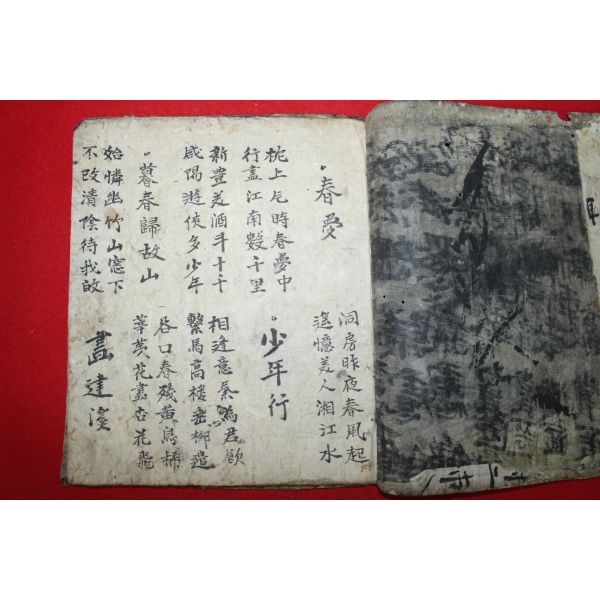 春夢
洞房昨夜春風起
遥憶美人湘江水
枕上片時春夢中
行盡江南數千里
少年行
新豊美酒斗十千
咸陽遊俠多少年
相逢意氣為君飲
繫馬高樓垂柳邉
暮春歸故山
谷口春殘黃鳥稀
辛荑花盡杏花飛
始憐幽竹山窓下
不改清陰待我歸
畫建溪